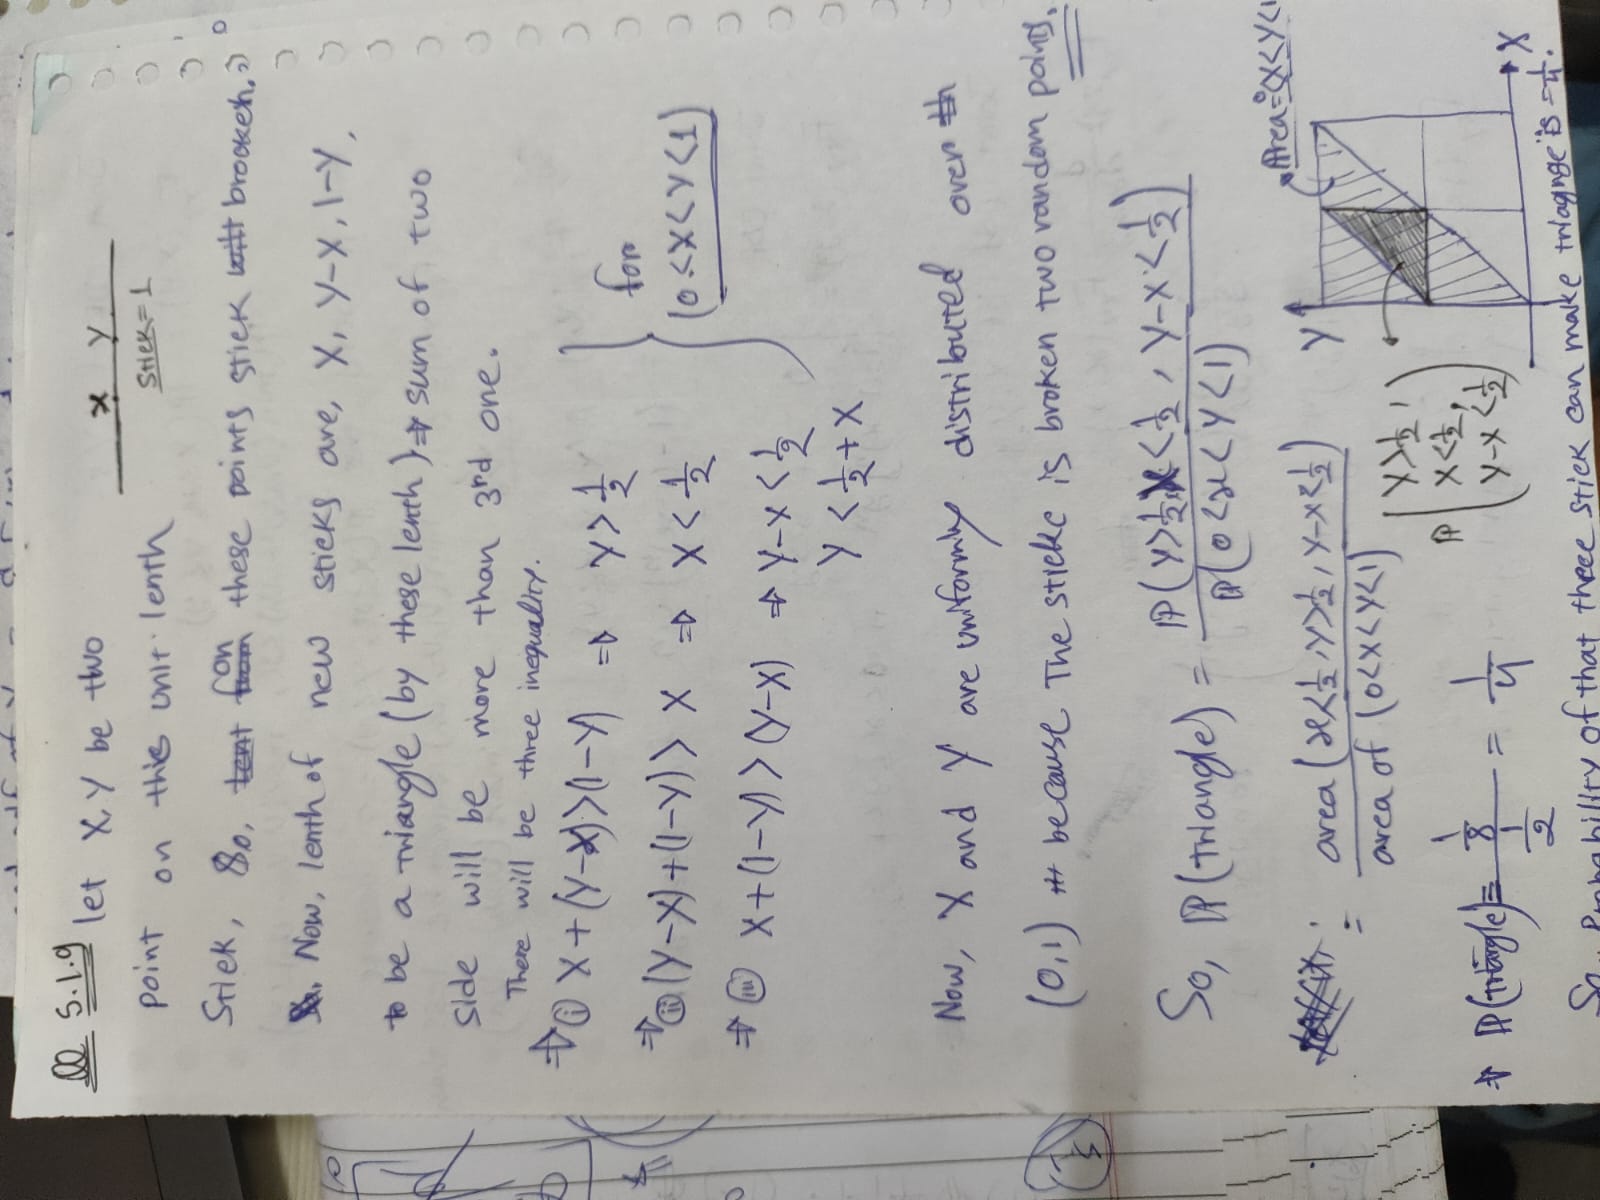 Q 5.1.9 let X, Y be two
x y
Stick = 1
point on this unit lenth
Stick, So, on these points stick brocken.
Now, lenth of new sticks are, X, Y-X, 1-Y,
to be a triangle (by these lenth) ⇒ sum of two
side will be more than 3rd one.
There will be three inequality.
⇒ (i) X + (Y-X) > (1-Y) ⇒ Y > 1/2
⇒ (ii) (Y-X) + (1-Y) > X ⇒ X < 1/2
for
(0 < X < Y < 1)
⇒ (iii) X + (1-Y) > (Y-X) ⇒ Y-X < 1/2
Y < 1/2 + X
Now, X and Y are uniformly distributed over
(0,1) because The stickc is broken two random points.
So, P(triangle) = P(Y > 1/2, X < 1/2, Y-X < 1/2) / P(0 < x < Y < 1)
= area (x < 1/2, Y > 1/2, Y-X < 1/2) / area of (0 < X < Y < 1)
Area = 0<X<Y<1
Y
P(Y > 1/2, X < 1/2, Y-X < 1/2)
X
⇒ P(triangle) = 1/8 / 1/2 = 1/4
So, Probability of that three stick can make triagnge is = 1/4.